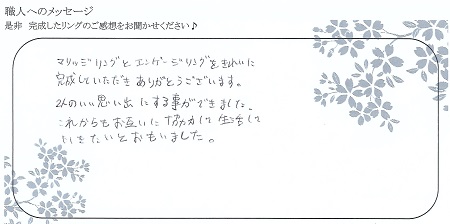 職人へのメッセージ
是非 完成したリングのご感想をお聞かせください♪
マリッジリングとエンゲージリングをきれいに
完成していただきありがとうございます。
2人のいい思い出にする事ができました。
これからもお互いに協力して生活して
いきたいとおもいました。